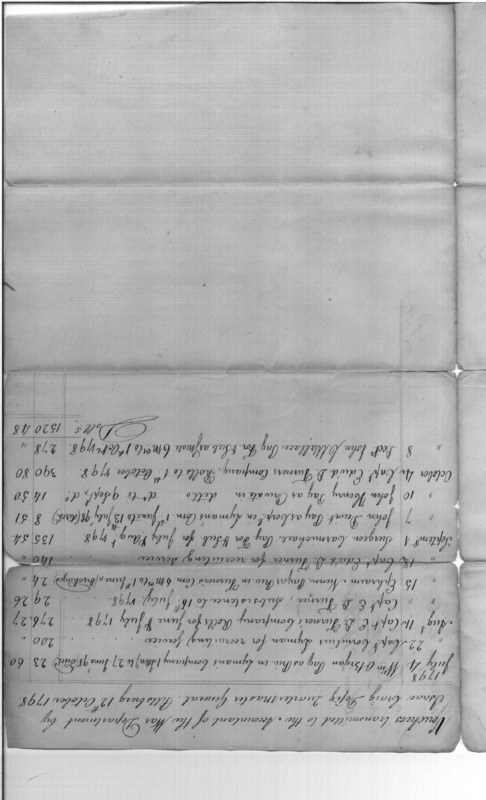 Vouchers transmitted to the Accountant of the War Department by
Isaac Craig Dep'ty Quartermaster General Pittsburg 12th October 1798
1798
July 4 Wm O'Bryan Pay as Priv. in Lymans Company from to 27 June 98 23 60
" 22 Capt Cornelius Lyman for recruiting service 200 "
Augt 11 Capt E. D. Turners Company Rolls for June & July 1798 276 27
" Capt E. D. Turner, Subsistence to 18th July 1798 29 26
" 15 Ephraim pay as Priv in Turners Com 24 "
" 18 Capt Edwd D. Turner for recruiting service 140 "
Septemr 1 Surgeon Carmichael Pay For & Sub for July & Augt 1798 135 54
" 7 John Pay as in Lymans Com 13th July 98 8 51
" 10 John Henry Pay as Private in ditto do to 9 Septr do 14 50
October 4 Capt Edwd D. Turners Company Rolls to 1st October 1798 390 80
" 8 Doct John Wallace Pay For & Sub as Mate 6 Mos to 1st Octr 1798 278 "
Dolls. 1520 48